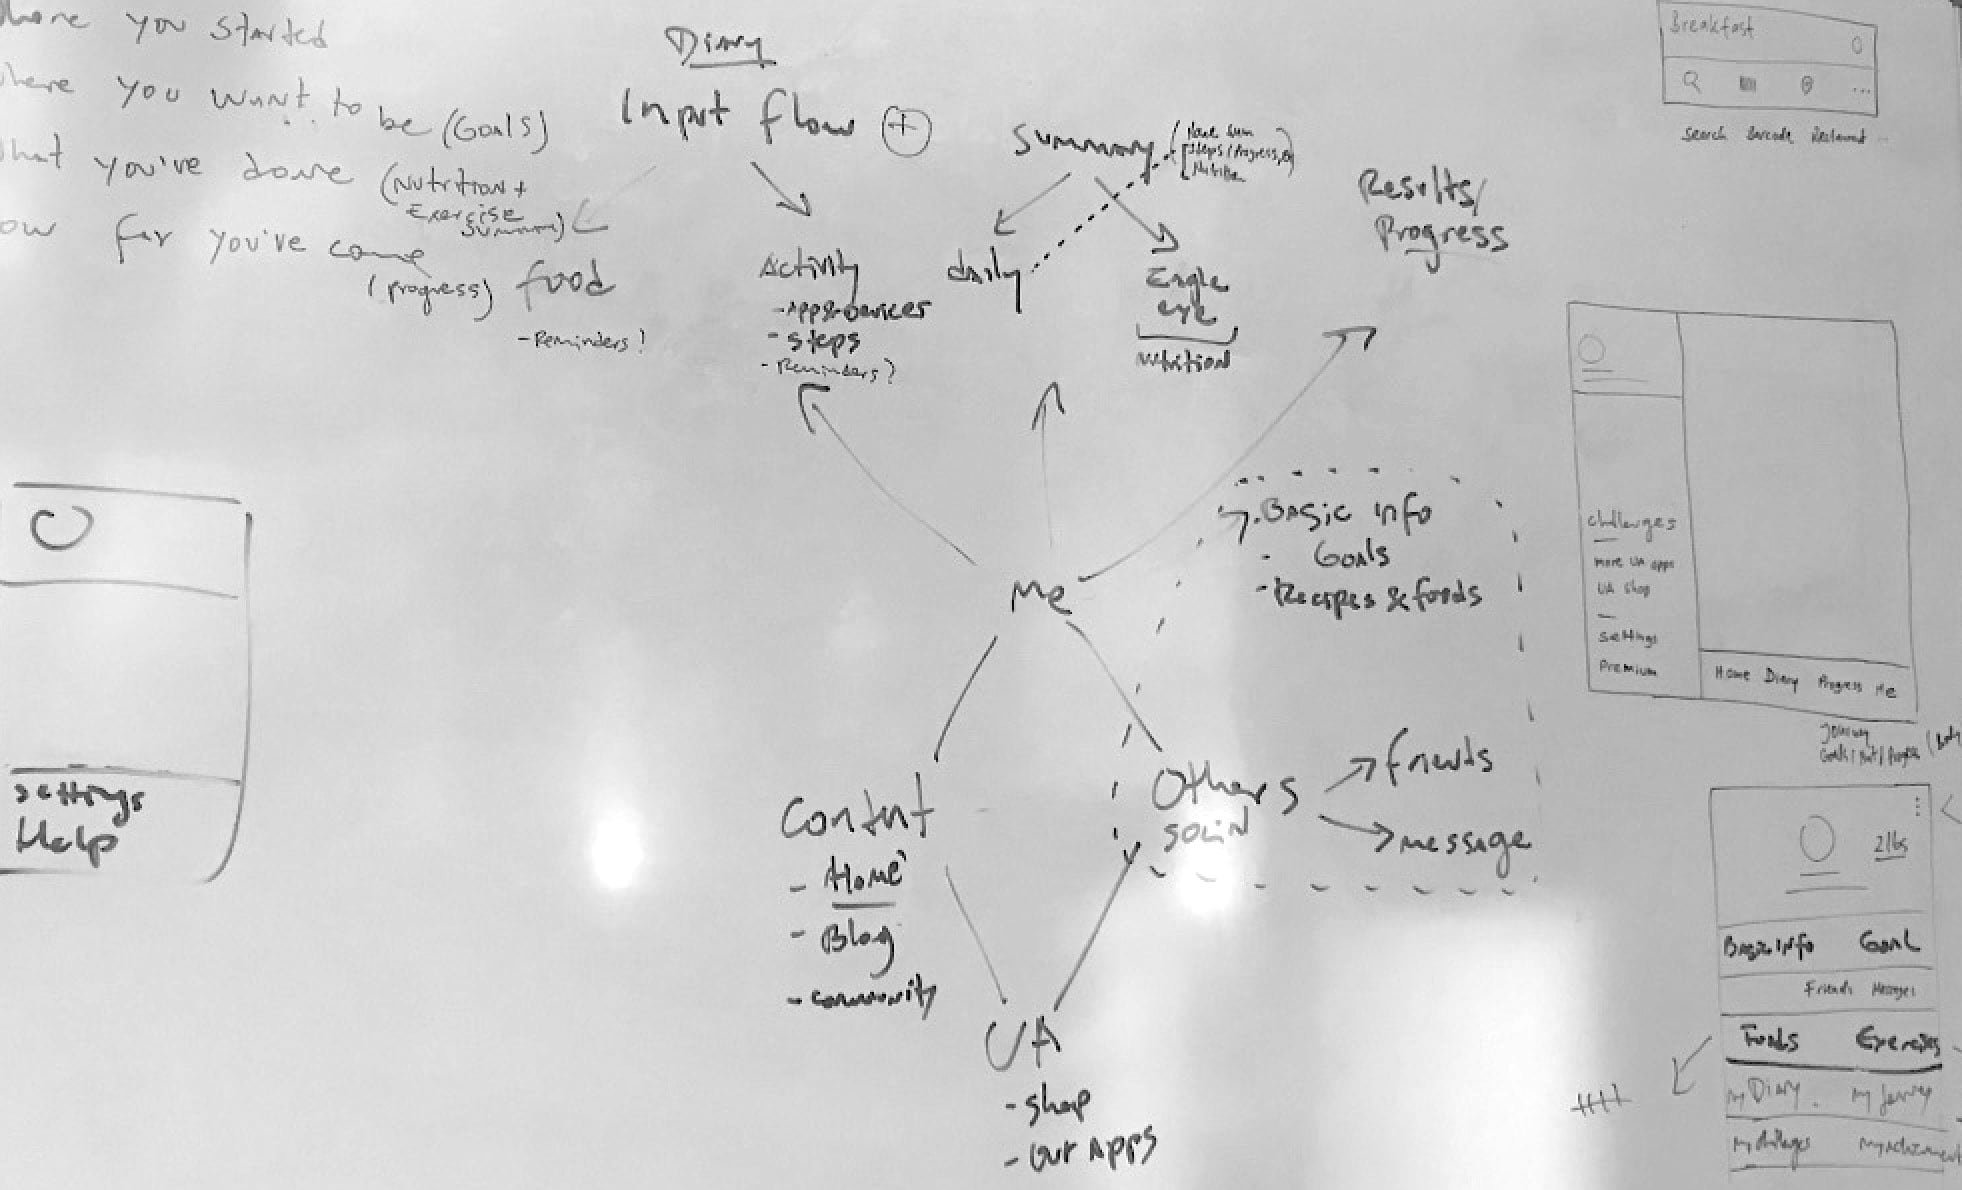 you started
you want to be (Goals)
you've done (Nutrition +
Exercise
Summary)
far you've come
(progress)
Diary
Input flow +
food
- Reminders?
Activity
- Apps & Devices
- Steps
- Reminders?
Summary
Steps / Progress
Nutrition
daily
Eagle
eye
nutrition
Results/
Progress
Breakfast
Search Barcode Restaurant ...
Settings
Help
Me
Basic info
- Goals
- Recipes & foods
Content
- Home
- Blog
- Community
Others
social
friends
message
UA
- shop
- our Apps
Challenges
more UA apps
UA shop
Settings
Premium
Home Diary Progress Me
Journey
Goals /
2 lbs
Basic info Goal
Friends Messages
Foods Exercises
my Diary my Journey
my